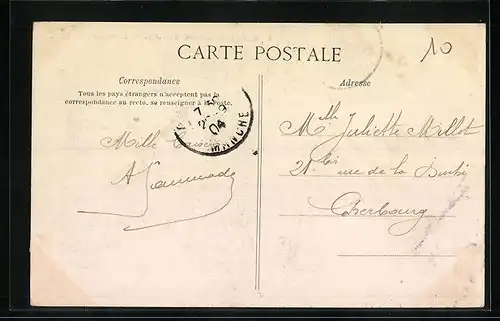 10
CARTE POSTALE
Correspondance
Tous les pays étrangers n'acceptent pas la
correspondance au recto, se renseigner à la Poste.
Adresse
7
04
MANCHE
Mille
A
Mlle Juliette Millot
21 bis rue de la
Cherbourg